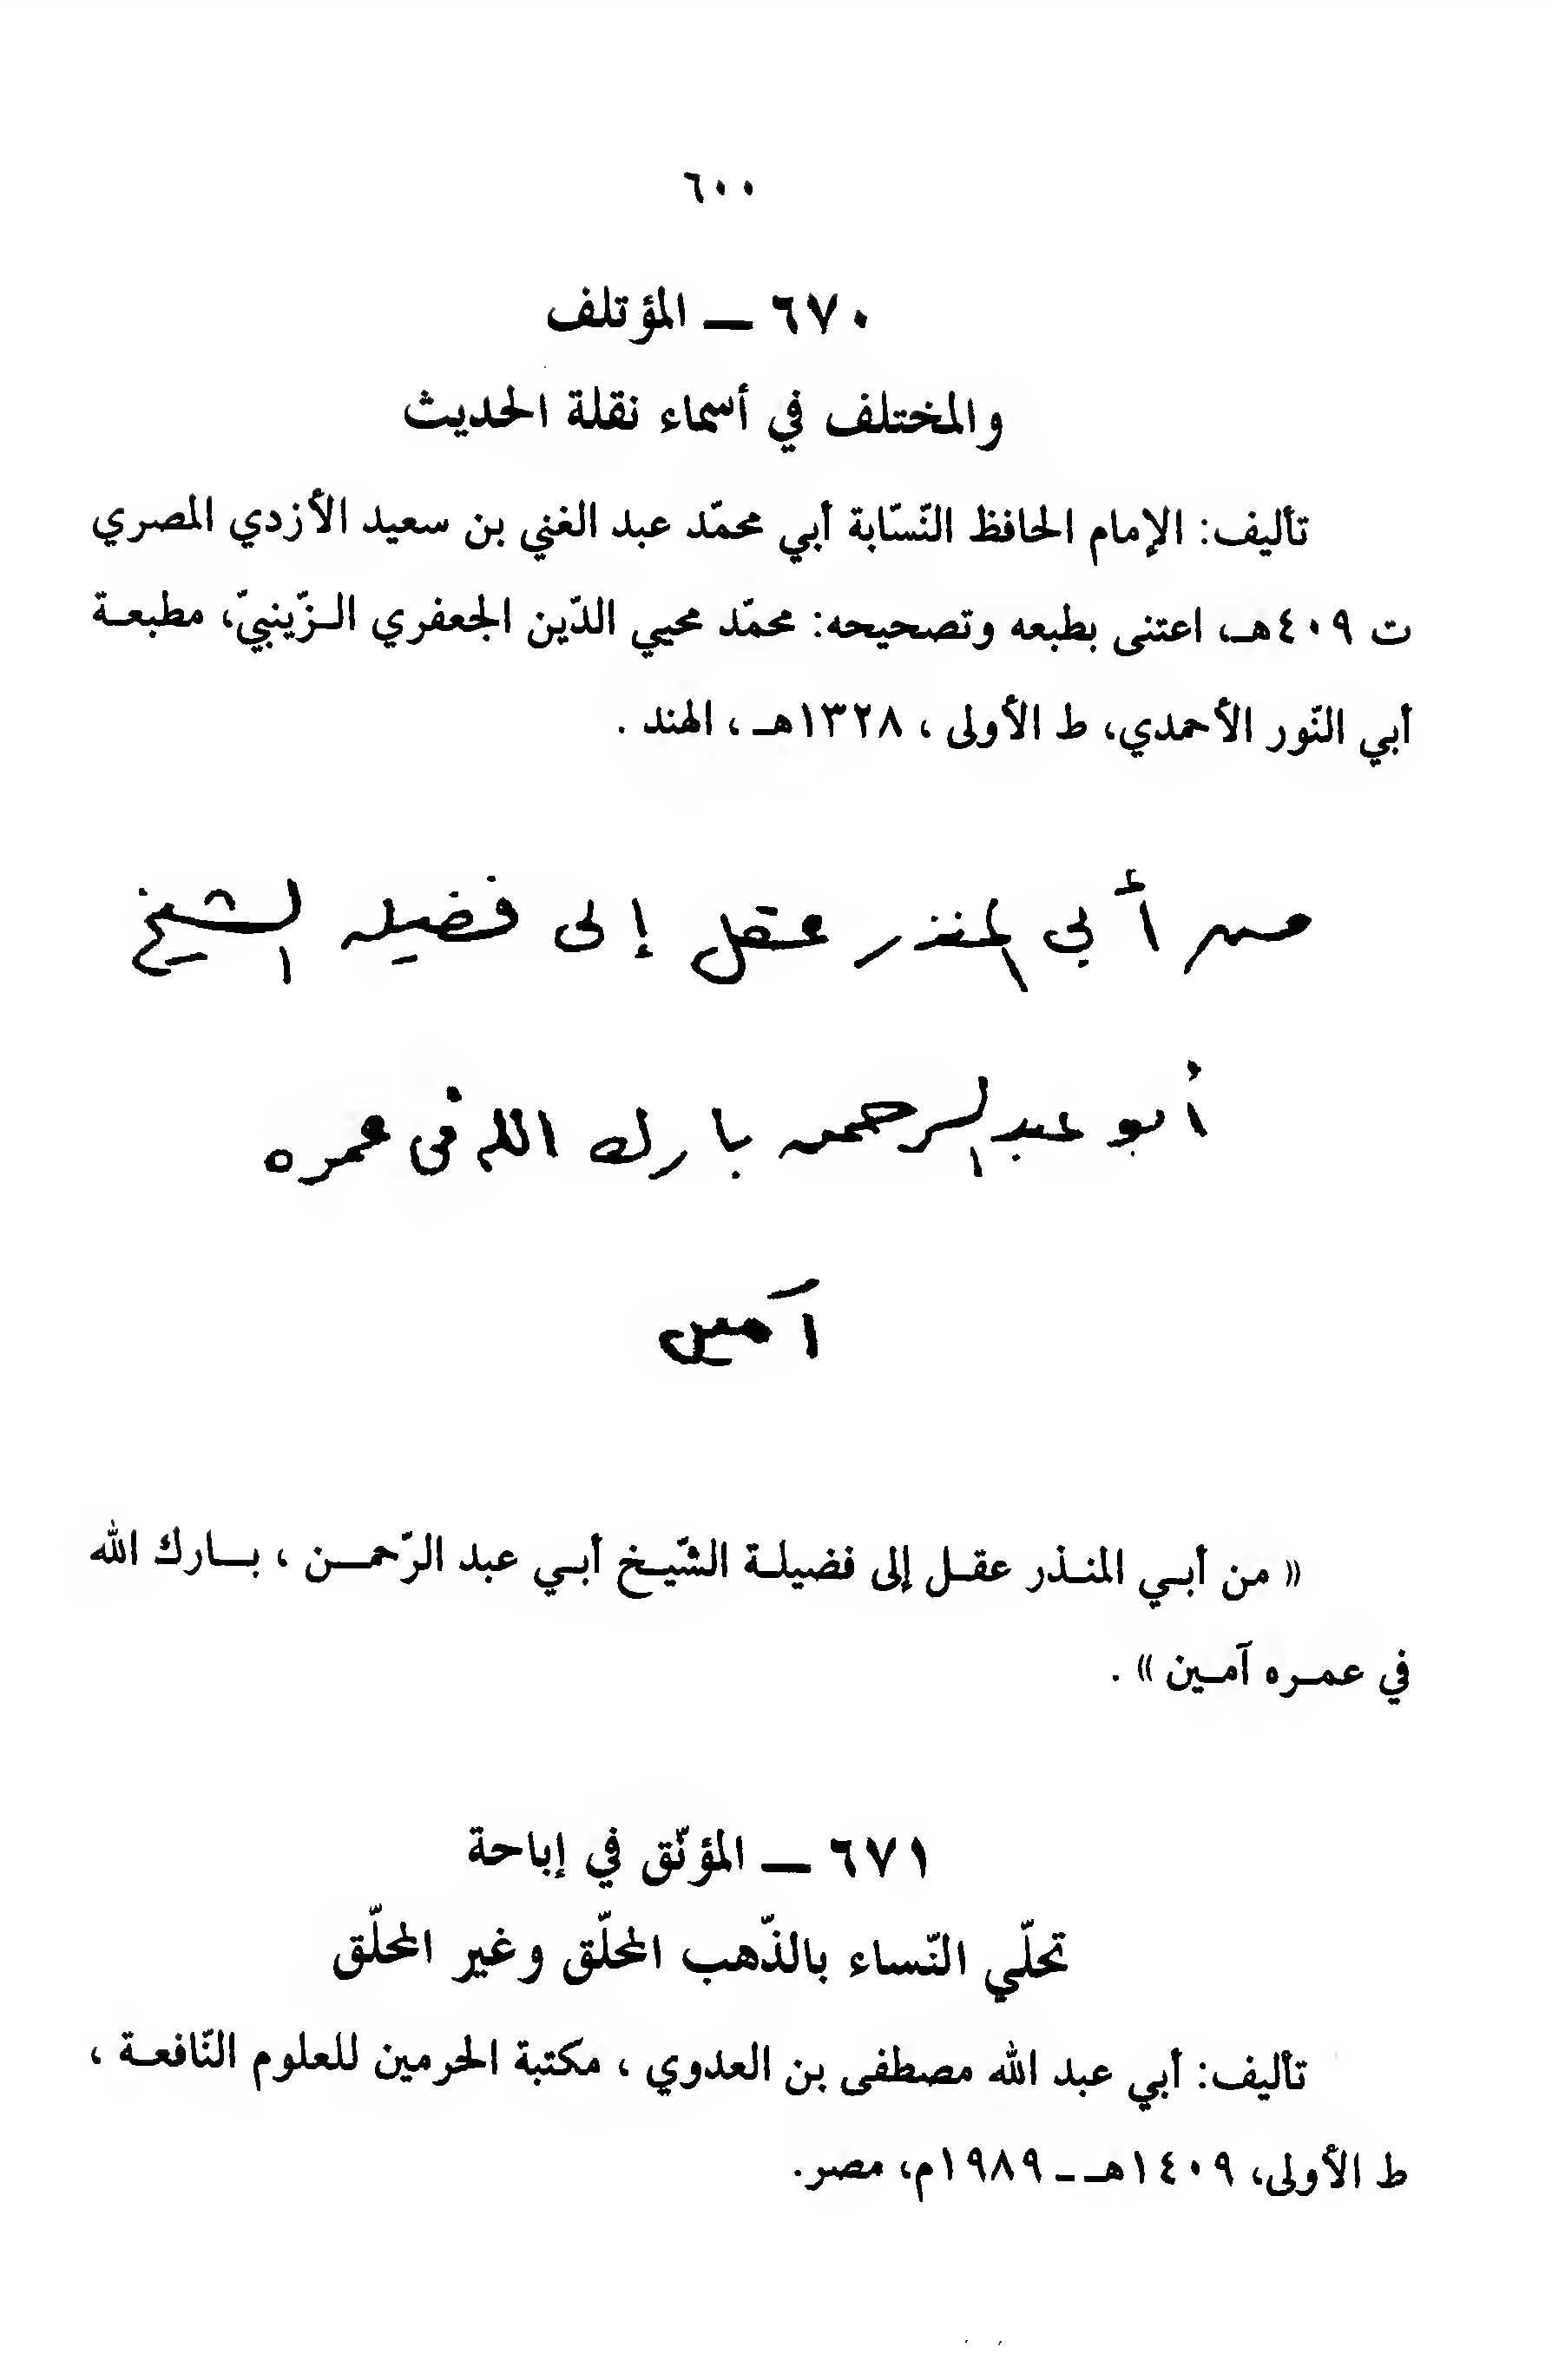 ٦٠٠
٦٧٠ – المؤتلف
والمختلف في أسماء نقلة الحديث
تأليف: الإمام الحافظ النّسّابة أبي محمّد عبد الغني بن سعيد الأزدي المصري
ت ٤٠٩هـ، اعتنى بطبعه وتصحيحه: محمّد محيي الدّين الجعفري الـزّينبيّ، مطبعـة
أبي النّور الأحمدي، ط الأولى ، ١٣٢٨هـ ، الهند .
من أبي المنذر عقل إلى فضيلة الشيخ
أبو عبد الرحمن بارك الله في عمره
آمين
« من أبـي المنـذر عقـل إلى فضيلـة الشّيـخ أبـي عبد الرّحمـــن ، بـــارك الله
في عمـره آمـين » .
٦٧١ – المؤنّق في إباحة
تحلّي النّساء بالذّهب المحلّق وغير المحلّق
تأليف: أبي عبد الله مصطفى بن العدوي ، مكتبة الحرمين للعلوم النّافعـة ،
ط الأولى، ١٤٠٩هـ ـ ١٩٨٩م، مصر.